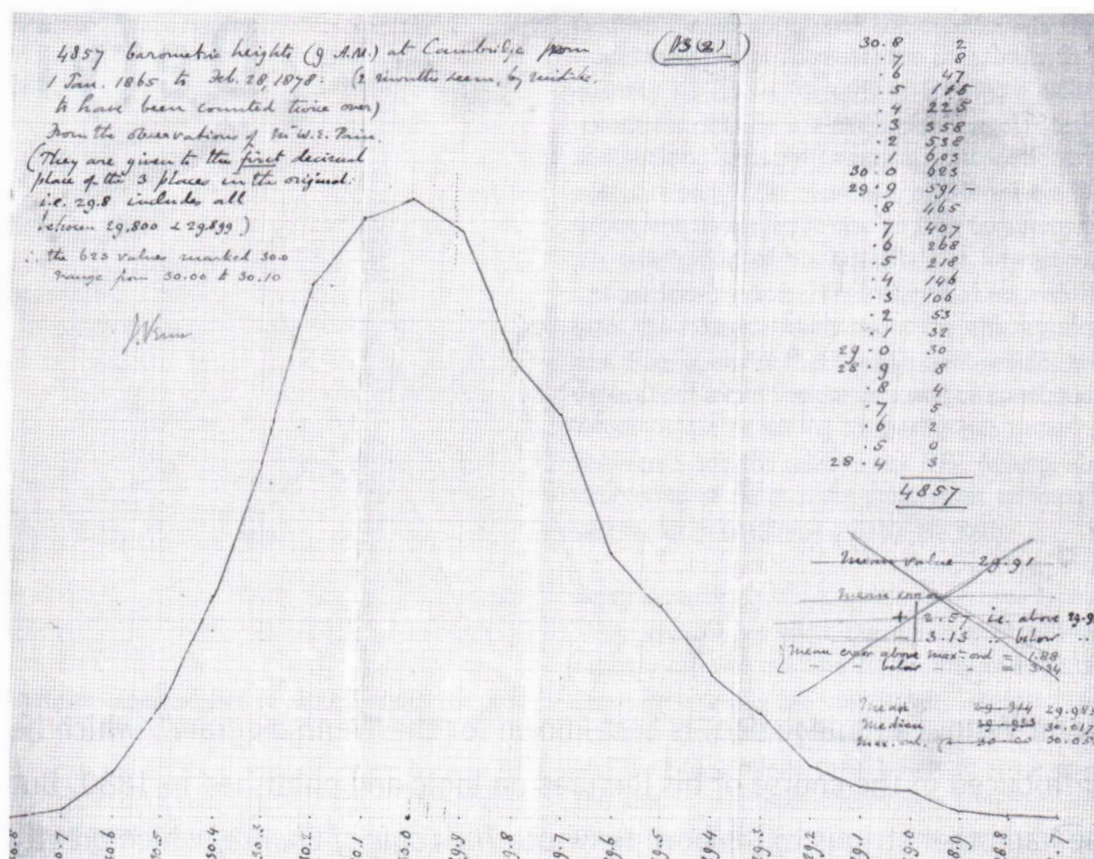 4857 barometric heights (9 A.M.) at Cambridge from
1 Jan. 1865 to Feb. 28, 1878. (2 months seem, by mistake,
to have been counted twice over)
From the observations of Mr W.E. Pain.
(They are given to the first decimal
place of the 3 places in the original:
i.e. 29.8 includes all
between 29,800 & 29,899)
∴ the 623 values marked 30.0
range from 30.00 to 30.10
J. Venn
30.8 2
.7 8
.6 47
.5 115
.4 225
.3 358
.2 538
.1 603
30.0 623
29.9 591 -
.8 465
.7 407
.6 268
.5 218
.4 146
.3 106
.2 53
.1 32
29.0 30
28.9 8
.8 4
.7 5
.6 2
.5 0
28.4 3
4857
Mean value 29.91
Mean error
+ 2.57 i.e. above 29.9
- 3.13 " below "
Mean error above max. ord = 1.88
- - below - - = 3.34
Mean 29.983
Median 30.017
Max. ord. 30.05
0.8 30.7 30.6 30.5 30.4 30.3 30.2 30.1 30.0 29.9 29.8 29.7 29.6 29.5 29.4 29.3 29.2 29.1 29.0 28.9 28.8 28.7